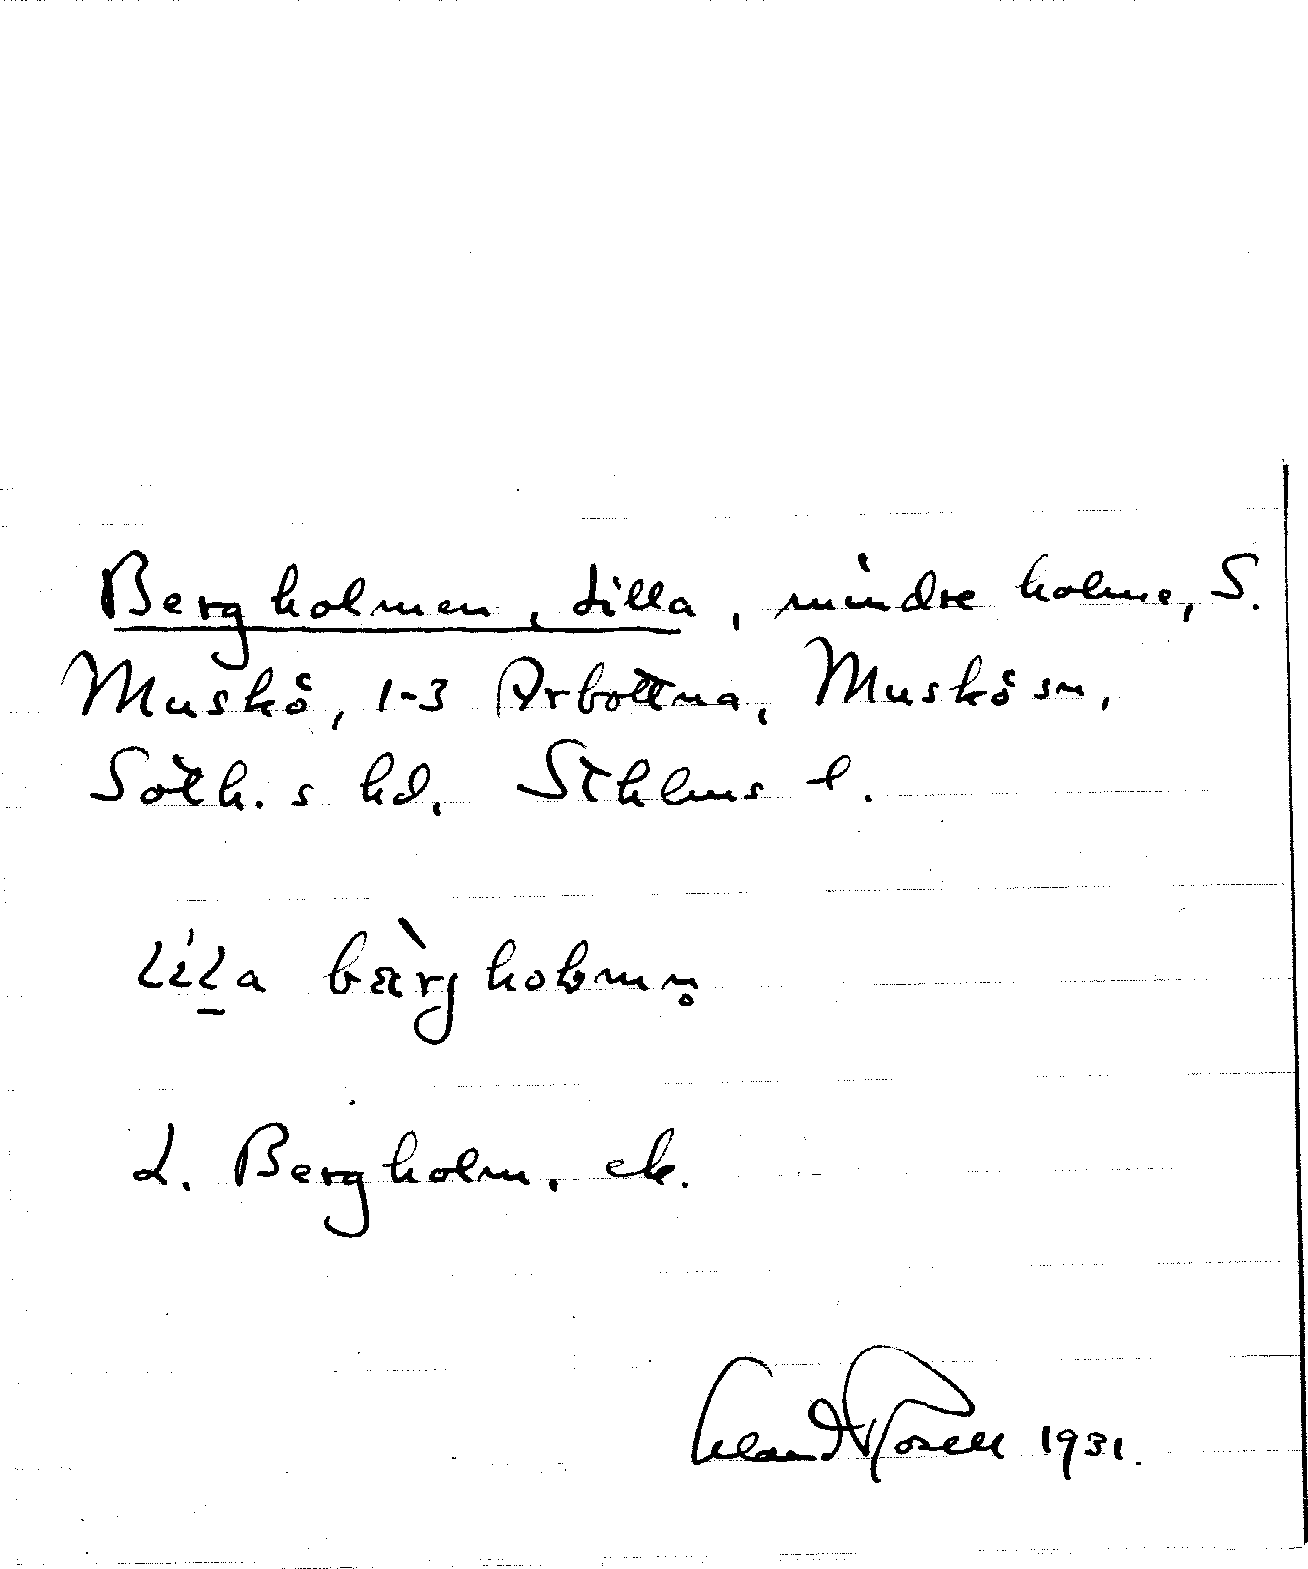 Bergholmen, Lilla, mindre holme, S.
Muskö, 1-3 Arbottna, Muskö sn,
Soth. s hd. Sthlms l.
lila bärgholmn̥
L. Bergholm. ek.
1931.